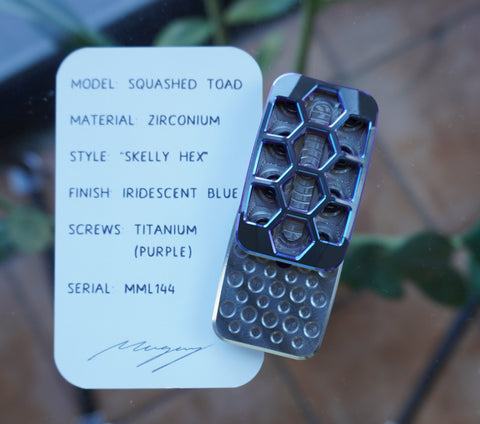 MODEL: SQUASHED TOAD
MATERIAL: ZIRCONIUM
STYLE: "SKELLY HEX"
FINISH: IRIDESCENT BLUE
SCREWS: TITANIUM
(PURPLE)
SERIAL: MML144